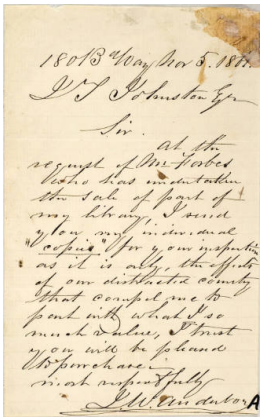 180 B Way Nov 5. 186
J T Johnston Esqr
Sir.
At the
request of Mr Forbes
who has undertaken
the sale of part of
my library, I send
you my individual
"copies" for your inspection
as it is only the effects
of our distracted country
that compel me to
part with what I so
much value, I trust
you will be pleased
to purchase.
most respectfully
A